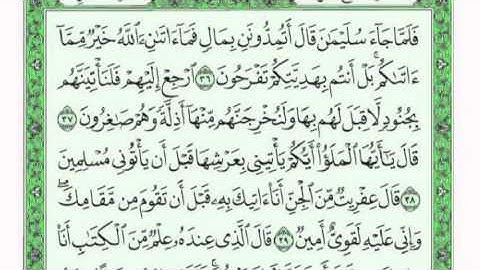 فَلَمَّا جَآءَ سُلَيْمَٰنَ قَالَ أَتُمِدُّونَنِ بِمَالٍ فَمَآ ءَاتَىٰنِۦَ ٱللَّهُ خَيْرٌ مِّمَّآ
ءَاتَىٰكُم بَلْ أَنتُم بِهَدِيَّتِكُمْ تَفْرَحُونَ ٣٦ ٱرْجِعْ إِلَيْهِمْ فَلَنَأْتِيَنَّهُم
بِجُنُودٍ لَّا قِبَلَ لَهُم بِهَا وَلَنُخْرِجَنَّهُم مِّنْهَآ أَذِلَّةً وَهُمْ صَٰغِرُونَ ٣٧
قَالَ يَٰٓأَيُّهَا ٱلْمَلَؤُا۟ أَيُّكُمْ يَأْتِينِى بِعَرْشِهَا قَبْلَ أَن يَأْتُونِى مُسْلِمِينَ
٣٨ قَالَ عِفْرِيتٌ مِّنَ ٱلْجِنِّ أَنَا۠ ءَاتِيكَ بِهِۦ قَبْلَ أَن تَقُومَ مِن مَّقَامِكَ ۖ
وَإِنِّى عَلَيْهِ لَقَوِىٌّ أَمِينٌ ٣٩ قَالَ ٱلَّذِى عِندَهُۥ عِلْمٌ مِّنَ ٱلْكِتَٰبِ أَنَا۠